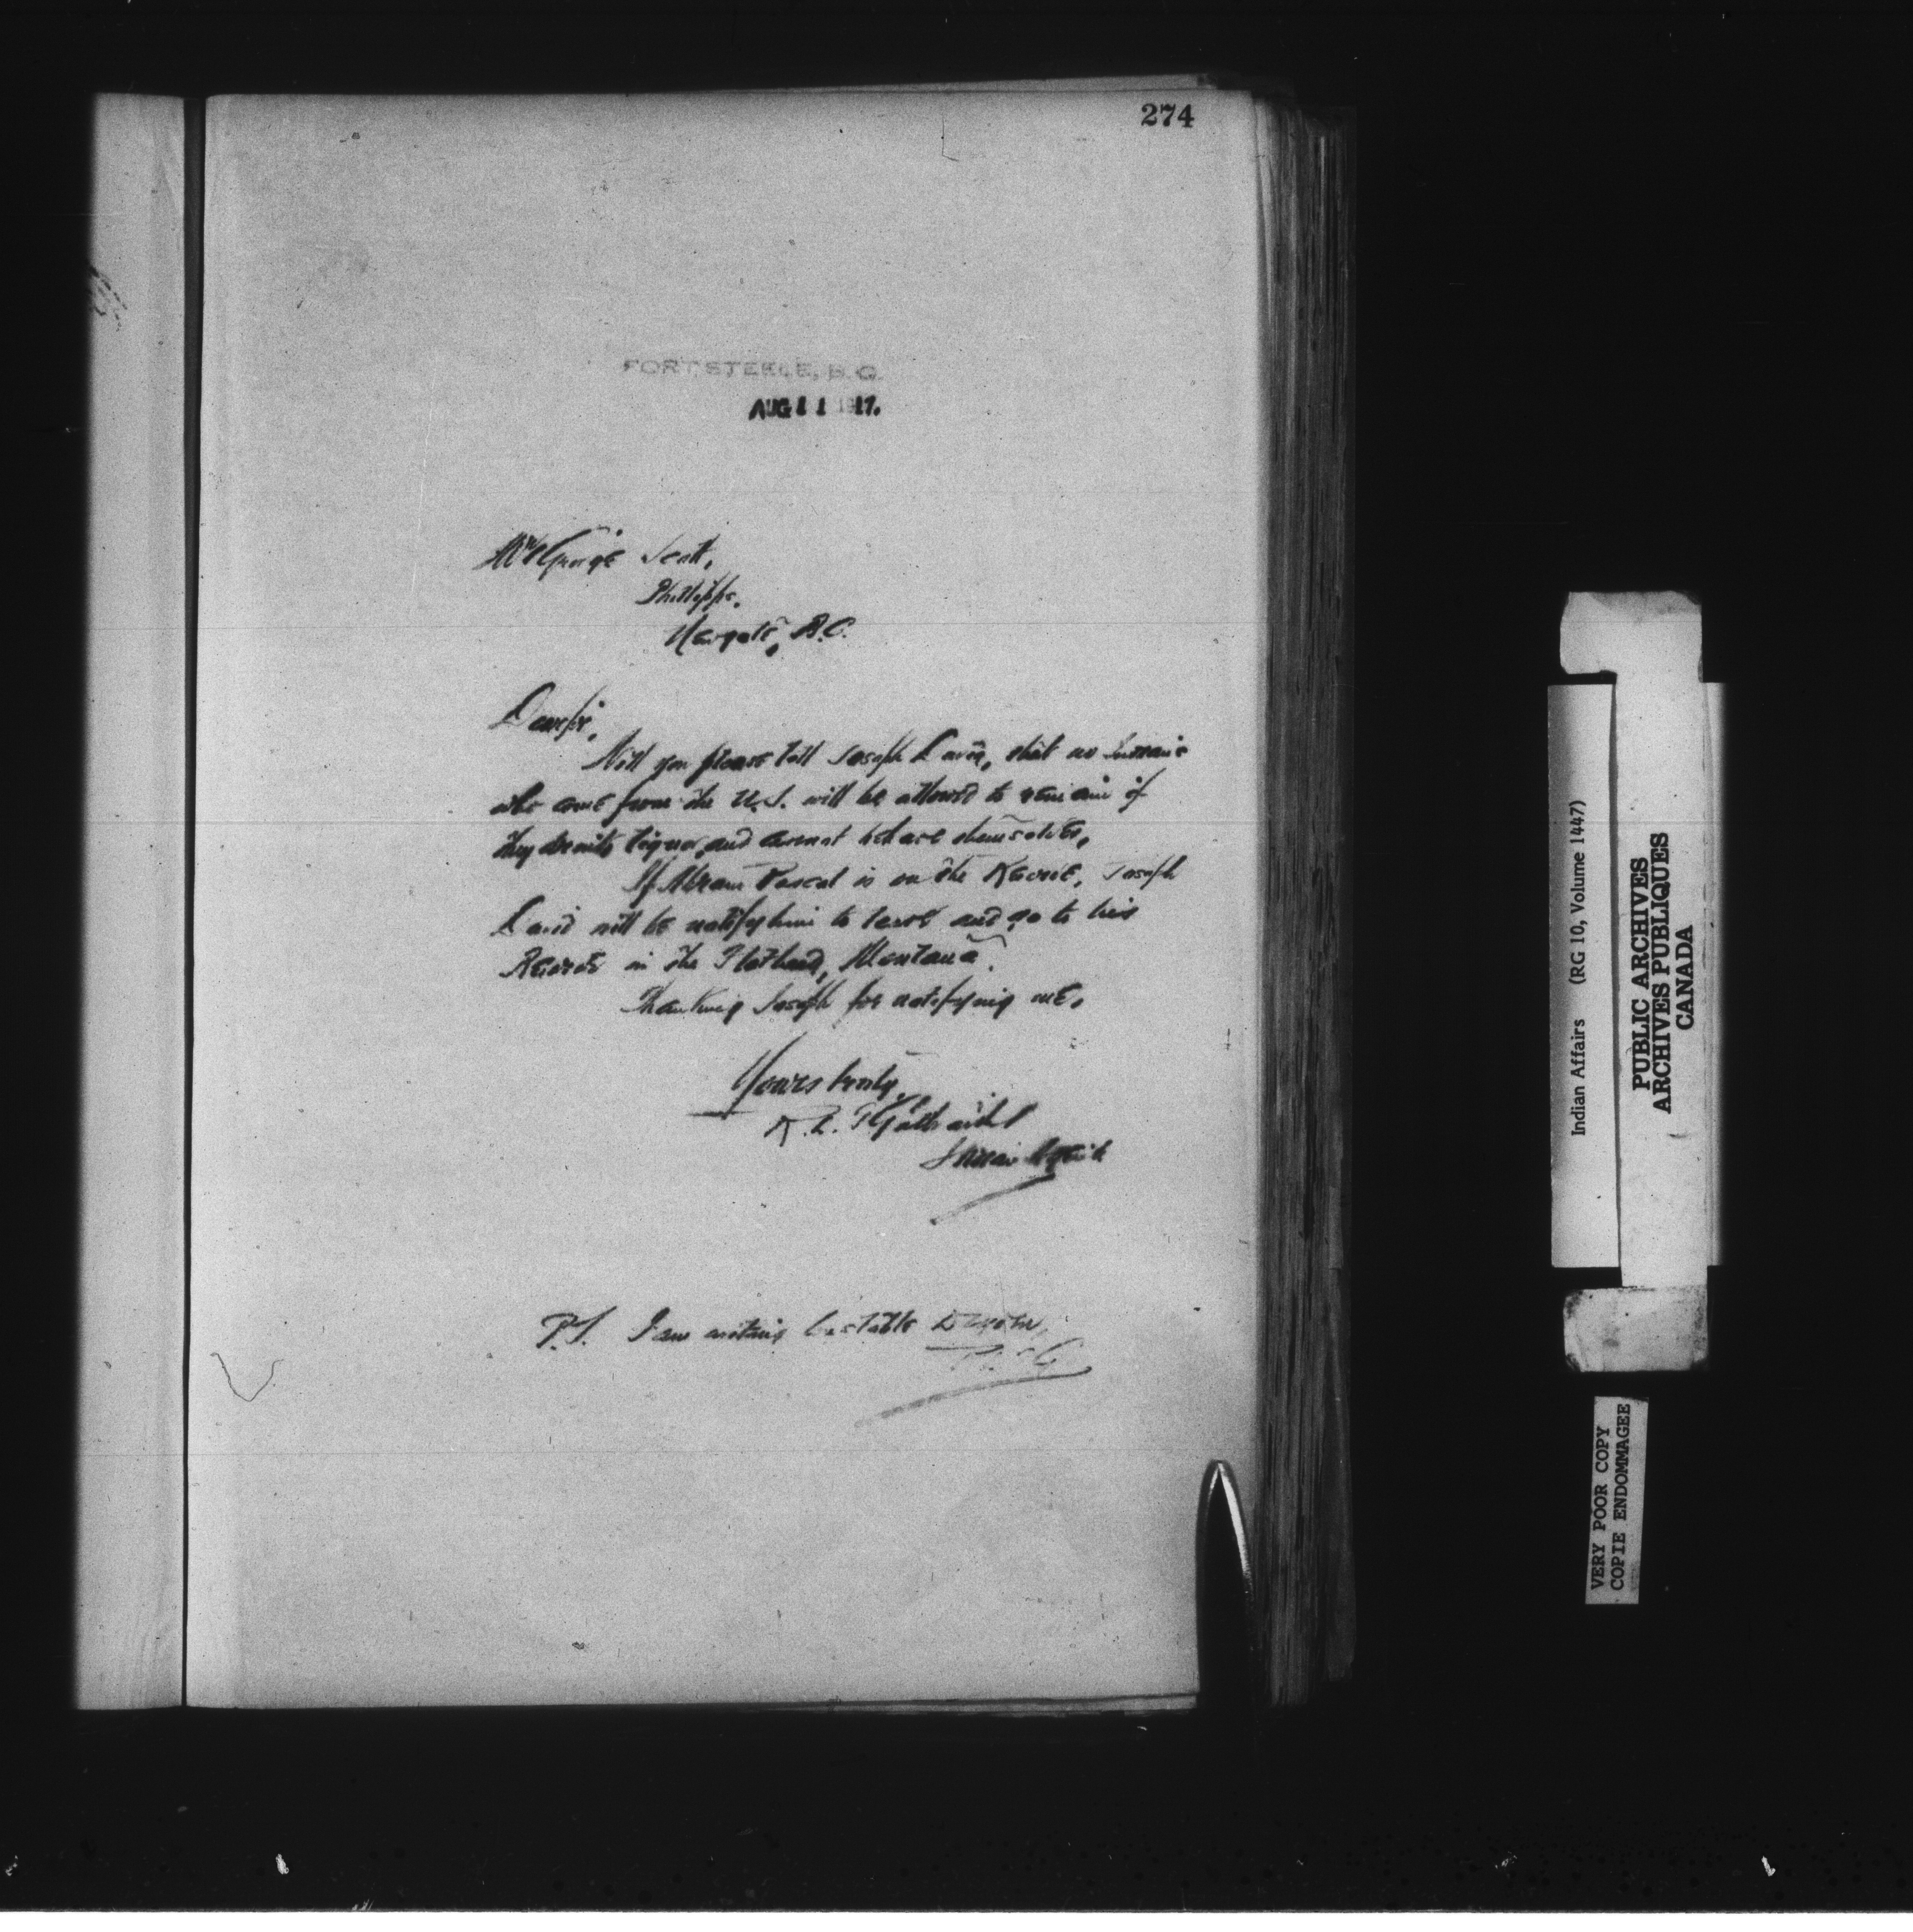 274
FORT STEELE, B.C.
AUG 11 1917.
Mr George Scott,
Phillipps,
Newgate, B.C.
Dear Sir,
Will you please tell Joseph David, that no Indians
who come from the U.S. will be allowed to remain if
they drink liquor, and cannot behave themselves,
If Abram Pascal is on the Reserve, Joseph
David will be notify him to leave and go to his
Reserve in the Flathead, Montana.
Thanking Joseph for notifying me,
Yours truly
R. L. T. Galbraith
Indian Agent
P.S. I am writing Constable
Indian Affairs (RG 10, Volume 1447)
PUBLIC ARCHIVES
ARCHIVES PUBLIQUES
CANADA
VERY POOR COPY
COPIE ENDOMMAGEE